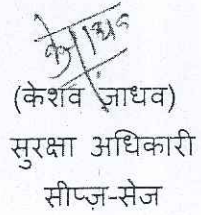 (केशव जाधव)
सुरक्षा अधिकारी
सीप्ज़-सेज